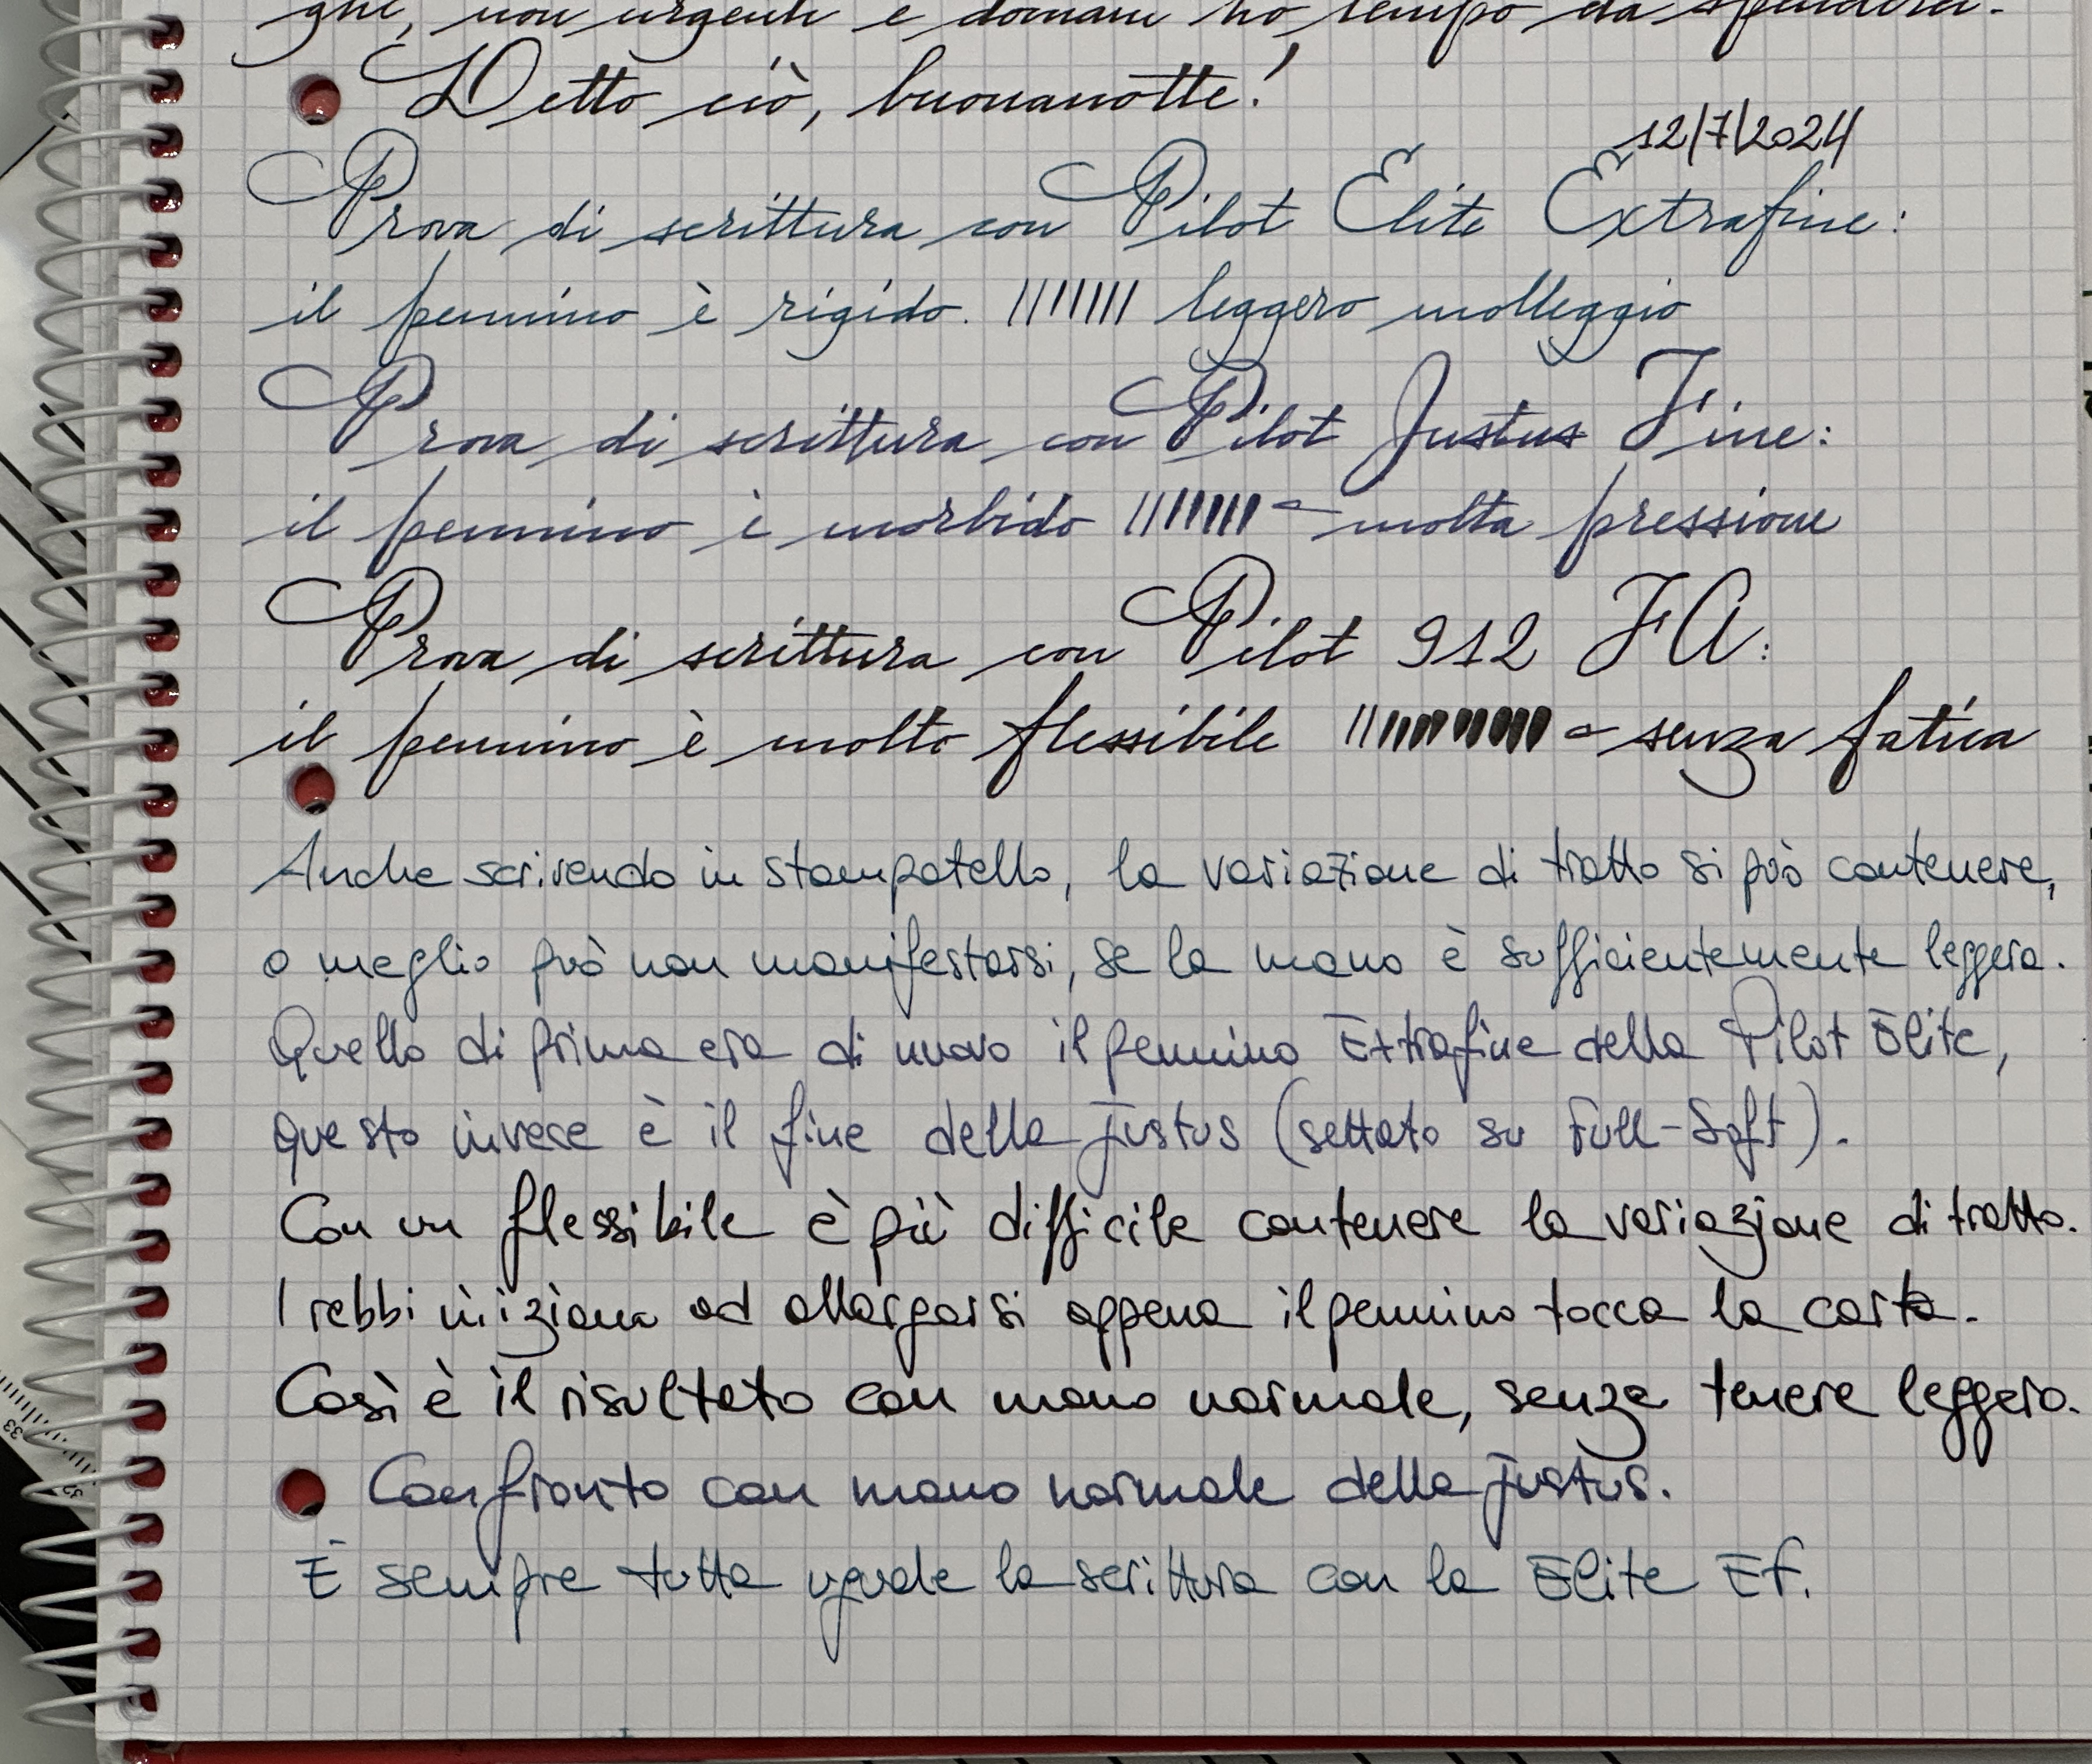 ghe, non urgenti e domani ho tempo da spenderci.
Detto ciò, buonanotte!
12/7/2024
Prova di scrittura con Pilot Elite Extrafine:
il pennino è rigido. leggero molleggio
Prova di scrittura con Pilot Justus Fine:
il pennino è morbido molta pressione
Prova di scrittura con Pilot 912 FA:
il pennino è molto flessibile senza fatica
Anche scrivendo in stampatello, la variazione di tratto si può contenere,
o meglio può non manifestarsi, se la mano è sufficientemente leggera.
Quello di prima era di nuovo il pennino Extrafine della Pilot Elite,
questo invece è il fine della Justus (settato su Full-Soft).
Con un flessibile è più difficile contenere la variazione di tratto.
I rebbi iniziano ad allargarsi appena il pennino tocca la carta.
Così è il risultato con mano normale, senza tenere leggero.
Confronto con mano normale della Justus.
È sempre tutta uguale la scrittura con la Elite EF.
33
32